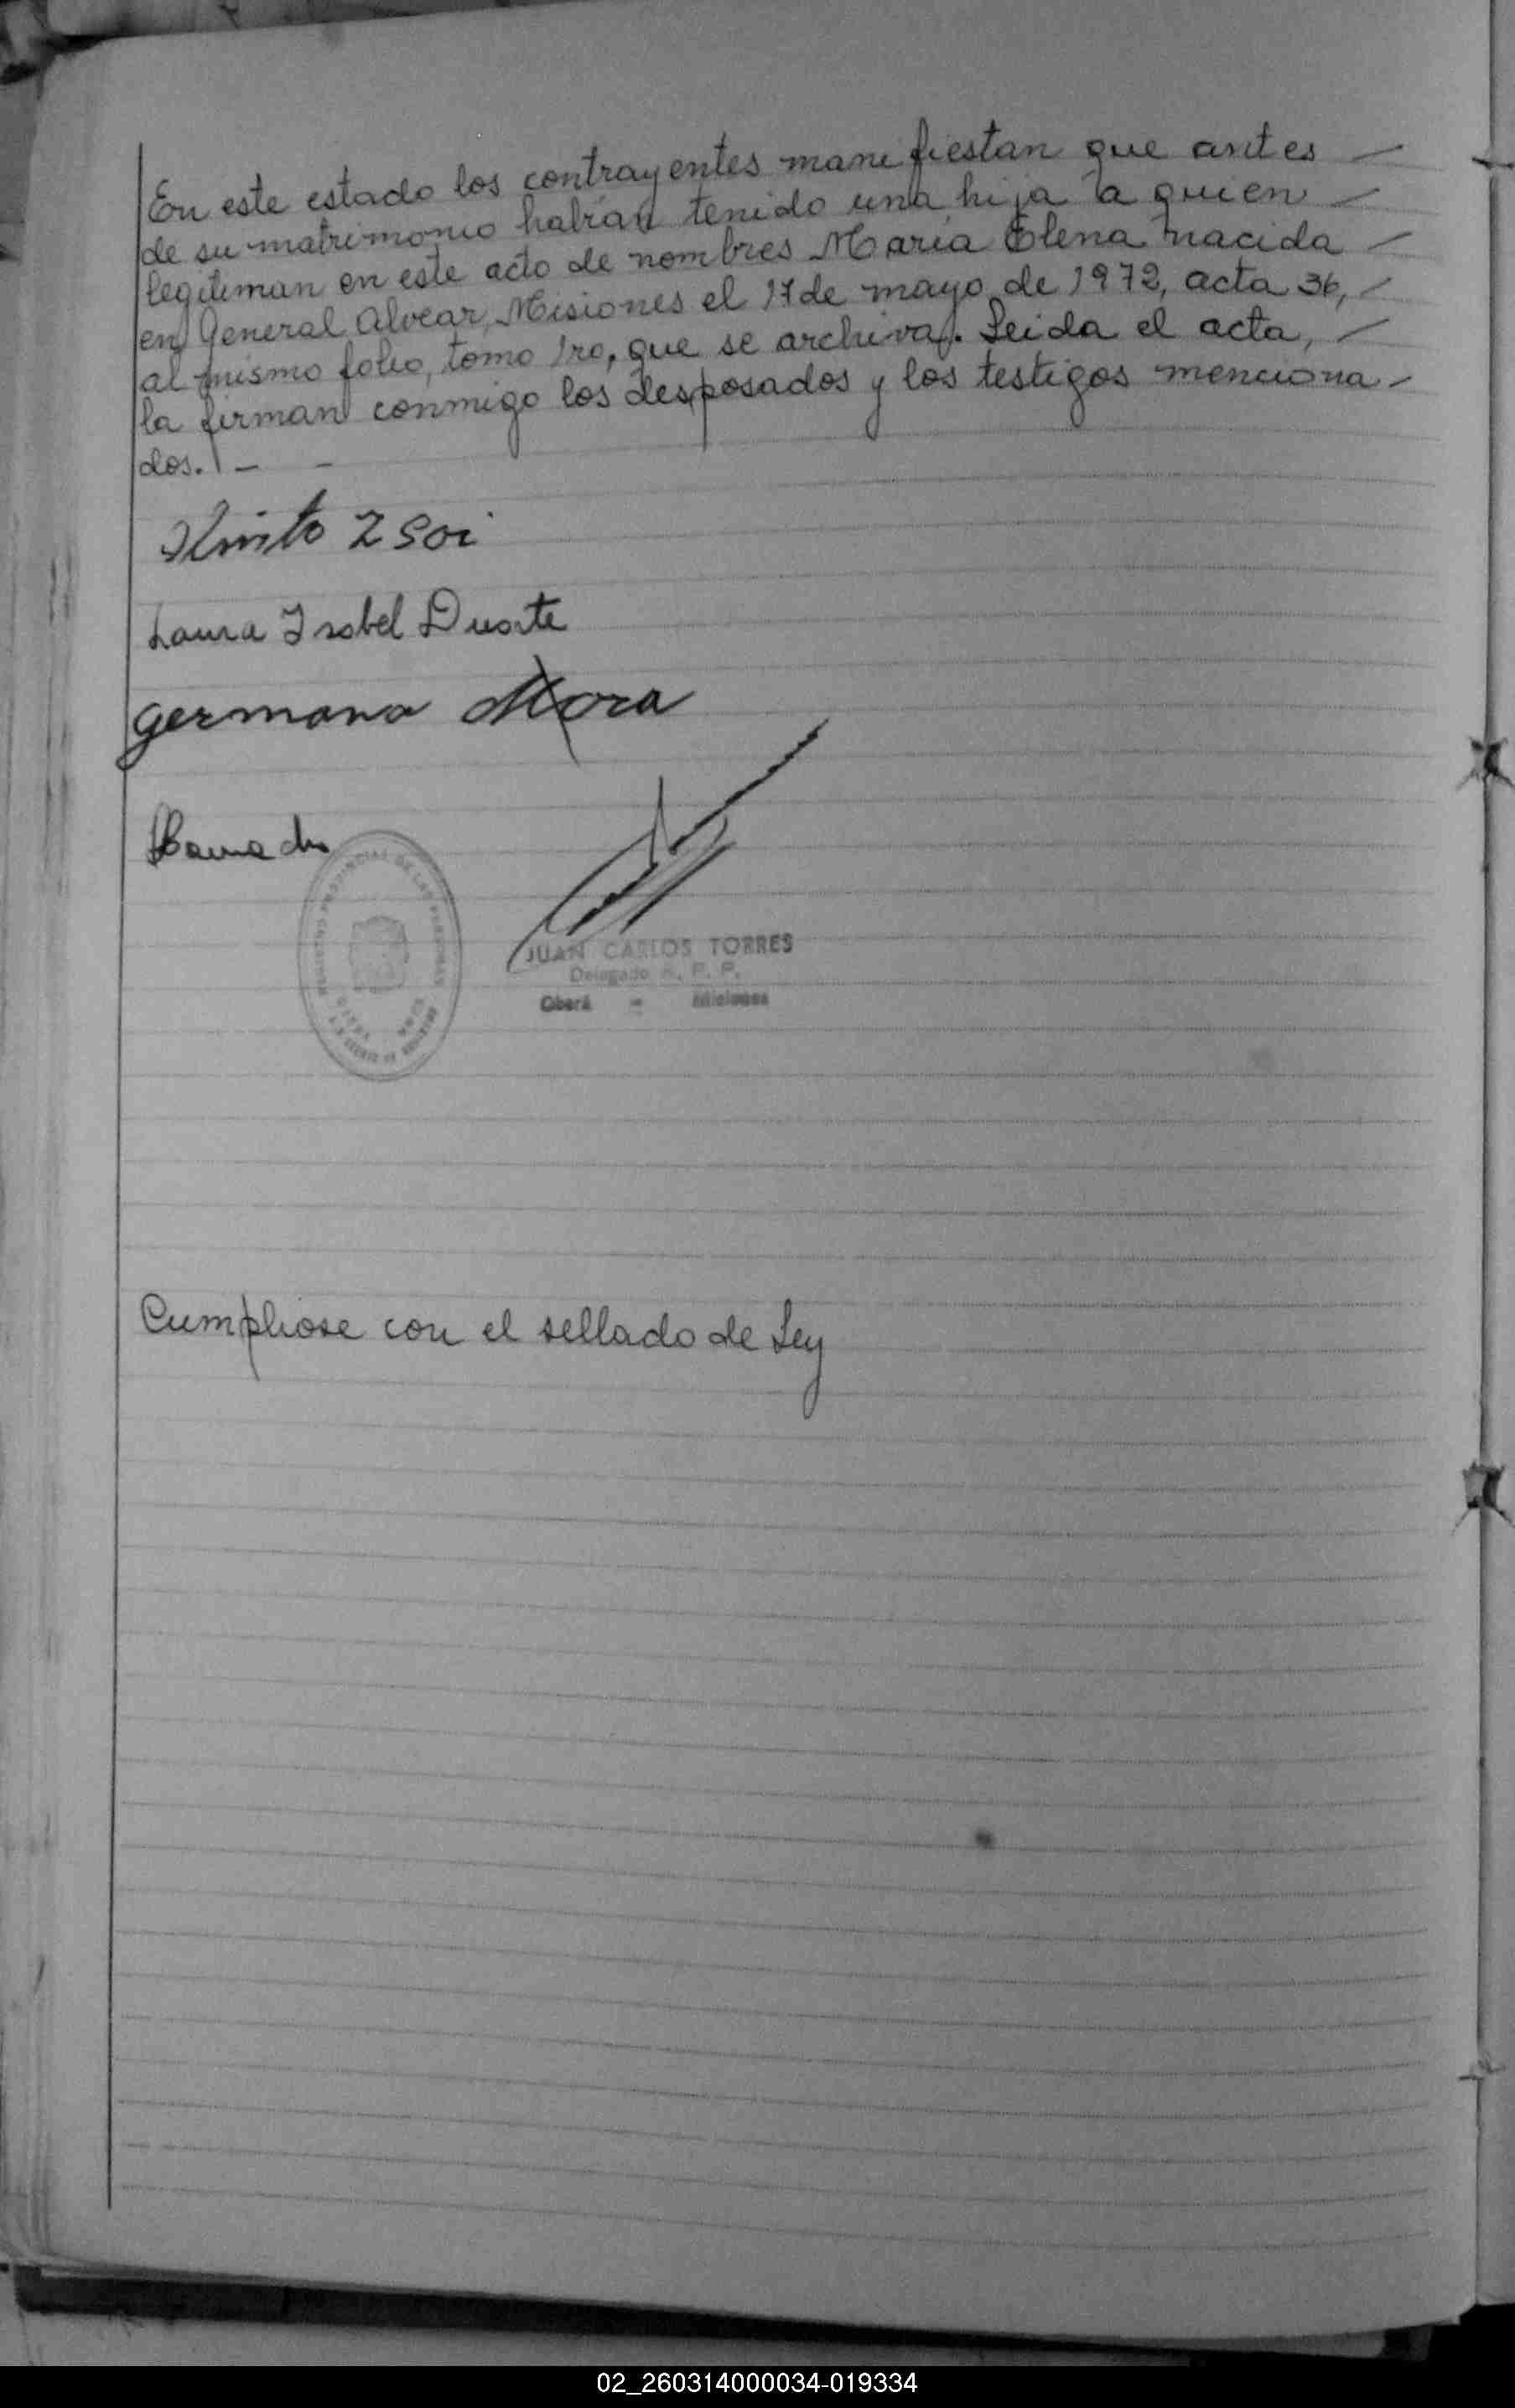 En este estado los contrayentes manifiestan que antes —
de su matrimonio habían tenido una hija a quien —
legitiman en este acto de nombres María Elena nacida —
en General Alvear, Misiones el 17 de mayo de 1972, acta 36, —
al mismo folio, tomo 1ro, que se archiva. Leida el acta, —
la firman conmigo los desposados y los testigos menciona-
dos. — —
Laura Isabel Duarte
germana Mora
JUAN CARLOS TORRES
Delegado R. P. P.
Oberá - Misiones
REGISTRO PROVINCIAL DE LAS PERSONAS
Cumpliose con el sellado de Ley
02_260314000034-019334